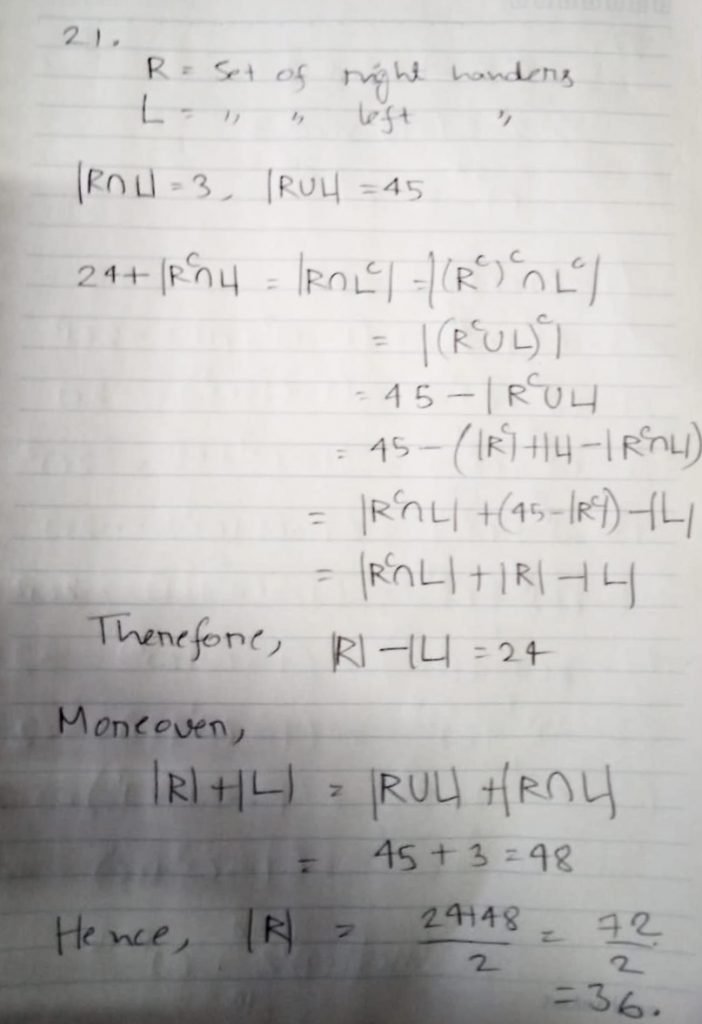 21.
R = Set of right handers
L = ,, ,, left ,,
|R∩L| = 3, |R∪L| = 45
24 + |Rᶜ∩L| = |R∩Lᶜ| = |(Rᶜ)ᶜ∩Lᶜ|
= |(Rᶜ∪L)ᶜ|
= 45 − |Rᶜ∪L|
= 45 − (|Rᶜ| + |L| − |Rᶜ∩L|)
= |Rᶜ∩L| + (45 − |Rᶜ|) − |L|
= |Rᶜ∩L| + |R| − |L|
Therefore, |R| − |L| = 24
Moreover,
|R| + |L| = |R∪L| + |R∩L|
= 45 + 3 = 48
Hence, |R| = (24+48)/2 = 72/2
= 36.